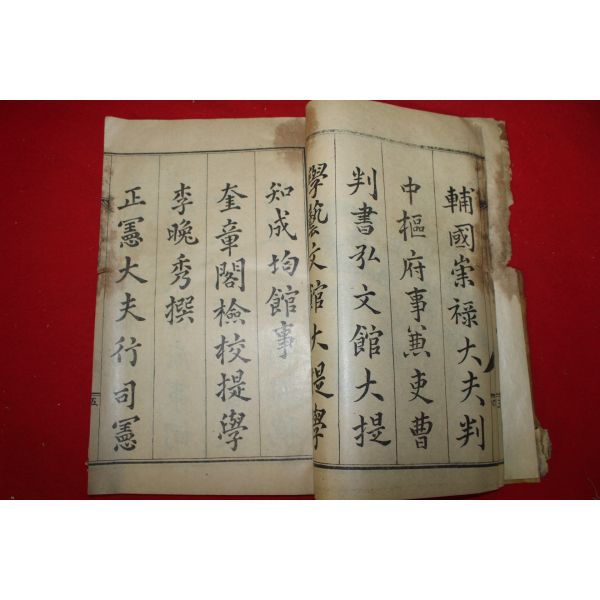 輔國崇祿大夫判
中樞府事兼吏曹
判書弘文館大提
學藝文館大提學
知成均館事
奎章閣檢校提學
李晚秀撰
正憲大夫行司憲
五